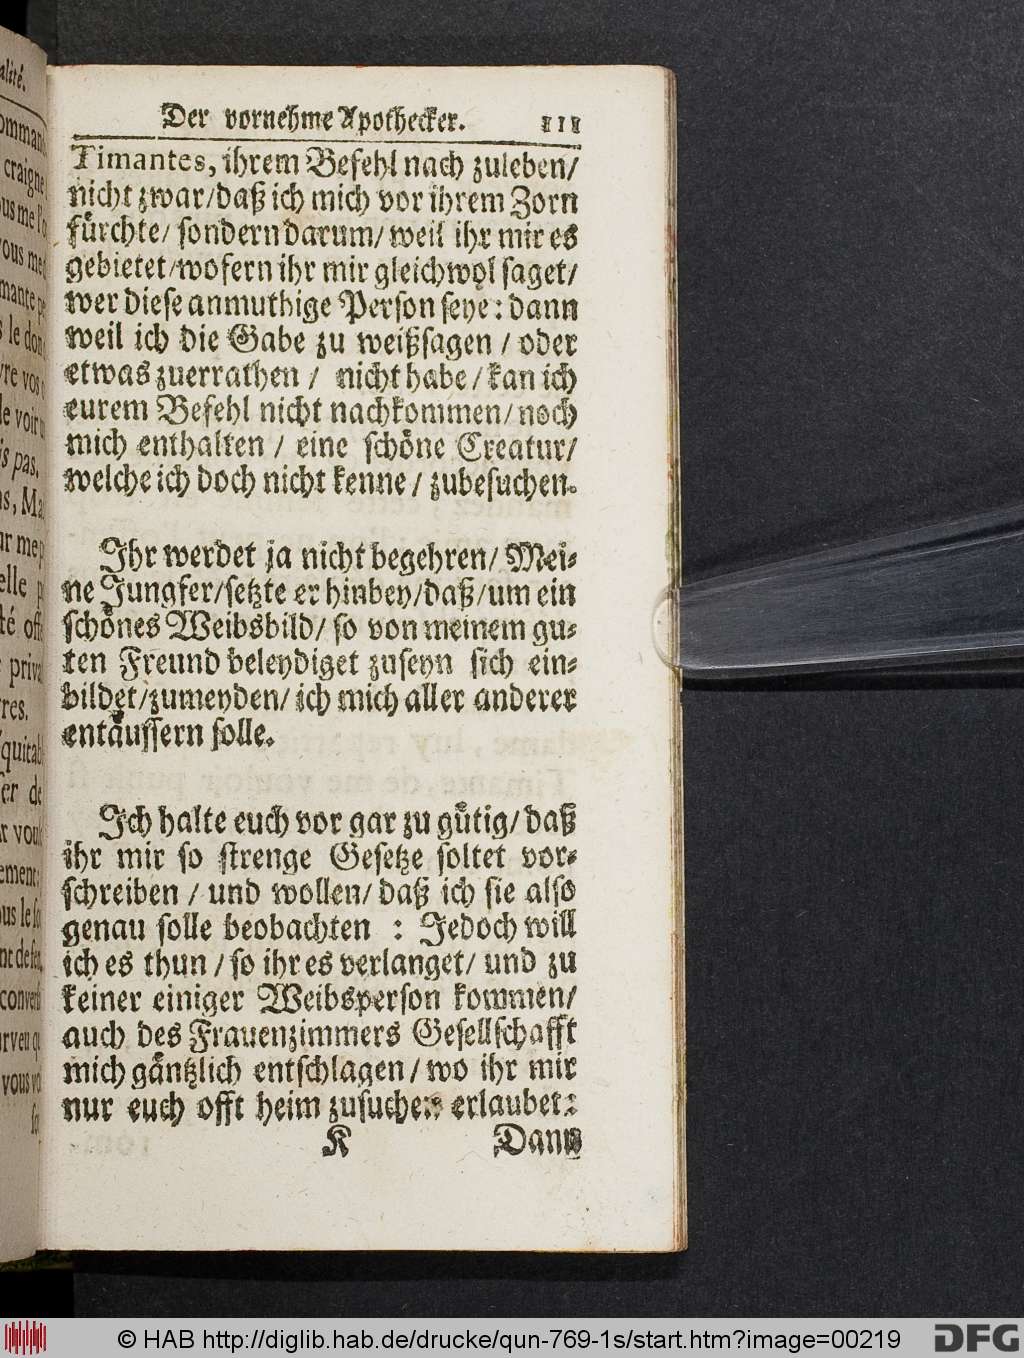 Der vornehme Apothecker. 111
Timantes, ihrem Befehl nach zuleben/
nicht zwar/daß ich mich vor ihrem Zorn
fürchte/ sondern darum/ weil ihr mir es
gebietet/wofern ihr mir gleichwol saget/
wer diese anmuthige Person seye: dann
weil ich die Gabe zu weißsagen / oder
etwas zuerrathen / nicht habe / kan ich
eurem Befehl nicht nachkommen/ noch
mich enthalten / eine schöne Creatur/
welche ich doch nicht kenne / zubesuchen.
Ihr werdet ja nicht begehren/ Mei-
ne Jungfer/setzte er hinbey/daß/um ein
schönes Weibsbild/ so von meinem gu-
ten Freund beleydiget zuseyn sich ein-
bildet/zumeyden/ ich mich aller anderer
entäussern solle.
Ich halte euch vor gar zu gütig/ daß
ihr mir so strenge Gesetze soltet vor-
schreiben / und wollen/ daß ich sie also
genau solle beobachten : Jedoch will
ich es thun / so ihr es verlanget/ und zu
keiner einiger Weibsperson kommen/
auch des Frauenzimmers Gesellschafft
mich gäntzlich entschlagen / wo ihr mir
nur euch offt heim zusuchen erlaubet:
K Dann
© HAB http://diglib.hab.de/drucke/qun-769-1s/start.htm?image=00219
DFG